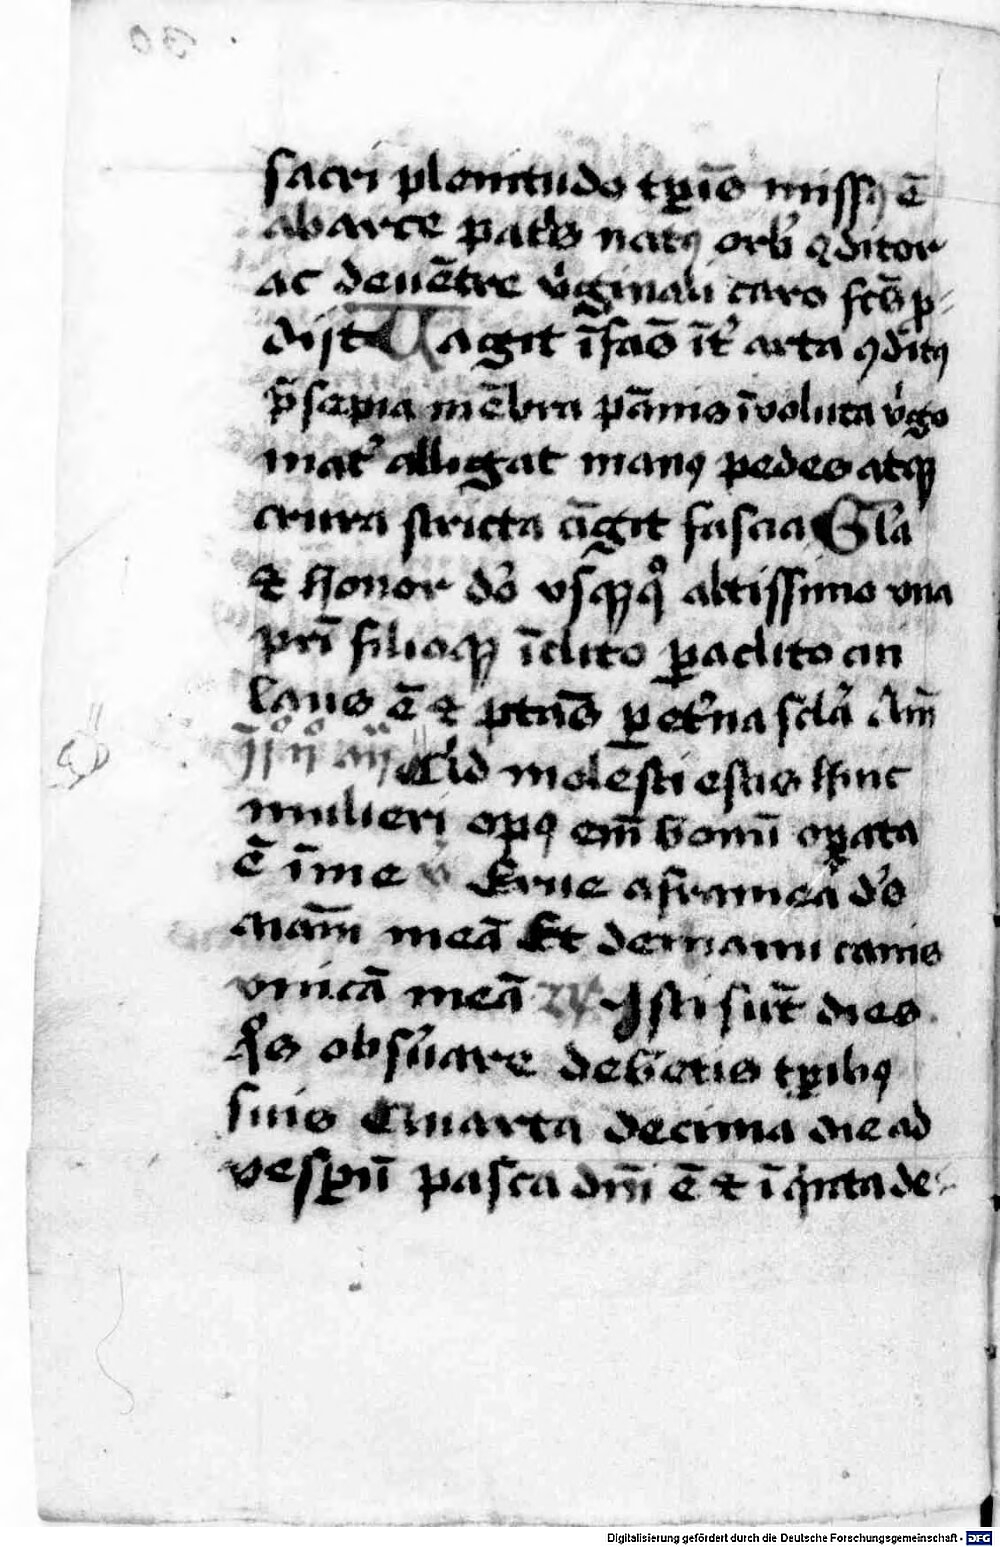 sacri plenitudo tp̄is missꝰ ē
ab arce pat̓s natꝰ orb̓ ꝯditor
ac de uētre v̓ginali caro fcs̄ p̱-
dijt Uagit īfās īt̓ arta ꝯditꝰ
p̄sepia mēbra pānis īvoluta v̓go
mat̓ alligat manꝰ pedes atqꝫ
crura stricta cīgit fascia Gl̓a
⁊ honor dō vsqꝫqͦ altissimo vna
pr̄i filioqꝫ īclito ꝑaclito cui
laus ē ⁊ ptās ꝑ et̓na scl̓a Am̄
Quid molesti estis huic
mulieri opꝰ em̄ bonū oꝑata
ē ī me v̓ Erue a framea ds̄
aīam meā Et de manu canis
vnicā meā Isti sūt dies
q̊s obs̓uare debetis tꝑibꝰ
suis Quarta decima die ad
vesꝑū pasca dn̄i ē ⁊ ī q̓nta de-
Digitalisierung gefördert durch die Deutsche Forschungsgemeinschaft - DFG